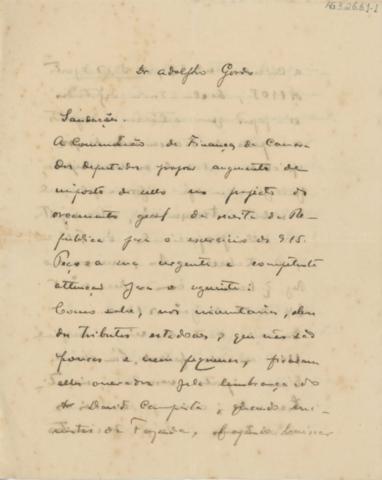 AG3.2651-1
Dr Adolpho Gordo
Saudações.
A Commissão de Finanças da Camara
dos Deputados propoz augmento de
imposto de sello no projecto do
orçamento geral da receita da Re-
publica para o exercicio de 915.
Peço a sua urgente e competente
attenção para o seguinte:
Como sabe, nos inventarios, alem
dos tributos estadoaes, que não são
poucos e nem pequenos, ficaram
elles onerados pela lembrança do
Dr David Campista, quando mi-
nistro da Fazenda,